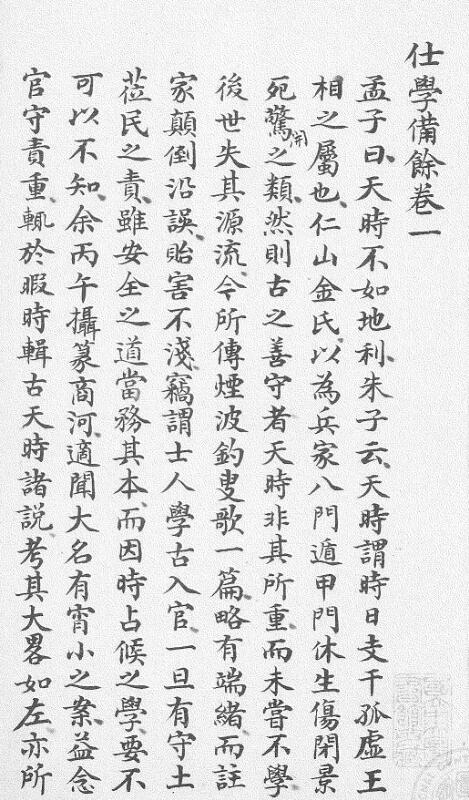 仕學備餘卷一
孟子曰天時不如地利朱子云天時謂時日支干孤虛王
相之屬也仁山金氏以為兵家八門遁甲門休生傷閉景
死驚開之類然則古之善守者天時非其所重而未嘗不學
後世失其源流今所傳煙波釣叟歌一篇略有端緒而註
家顛倒沿誤貽害不淺竊謂士人學古入官一旦有守土
莅民之責雖安全之道當務其本而因時占候之學要不
可以不知余丙午攝篆商河適聞大名有宵小之案益念
官守責重輒於暇時輯古天時諸說考其大畧如左亦所